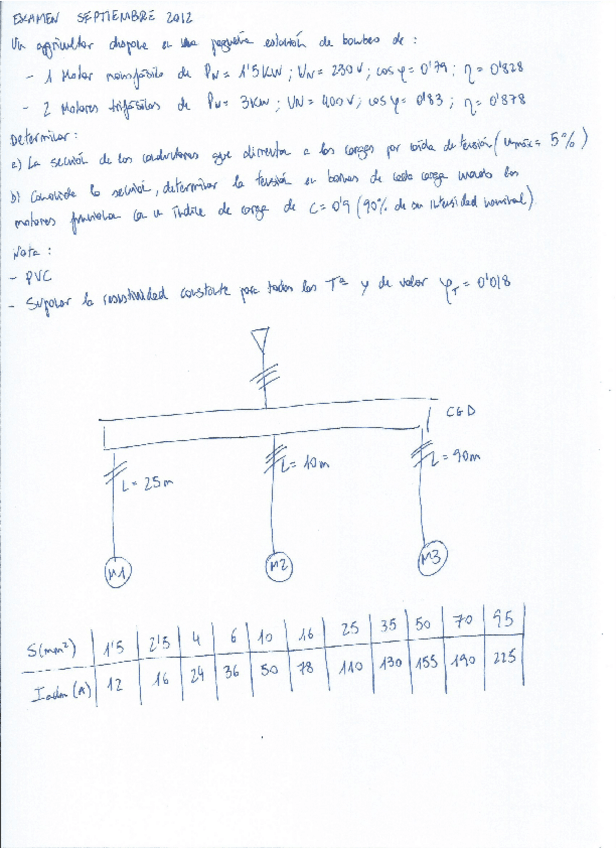 EXAMEN SEPTIEMBRE 2012
Un agricultor dispone en una pequeña estación de bombeo de :
- 1 Motor monofásico de PN = 1'5 KW ; UN = 230 V ; cos φ = 0'79 ; η = 0'828
- 2 Motores trifásicos de PN = 3KW ; UN = 400 V ; cos φ = 0'83 ; η = 0'878
Determinar :
a) La sección de los conductores que alimentan a las cargas por caída de tensión (umáx = 5%)
b) Conocida la sección, determinar la tensión en bornes de cada carga cuando los
motores funcionan con un índice de carga de C = 0'9 (90% de su intensidad nominal)
Nota :
- PVC
- Suponer la resistividad constante para todas las Tª y de valor ρT = 0'018
CGD
L = 25m
L = 10m
L = 90m
M1
M2
M3
S(mm²) 1'5 2'5 4 6 10 16 25 35 50 70 95
Iadm (A) 12 16 24 36 50 78 110 130 155 190 225